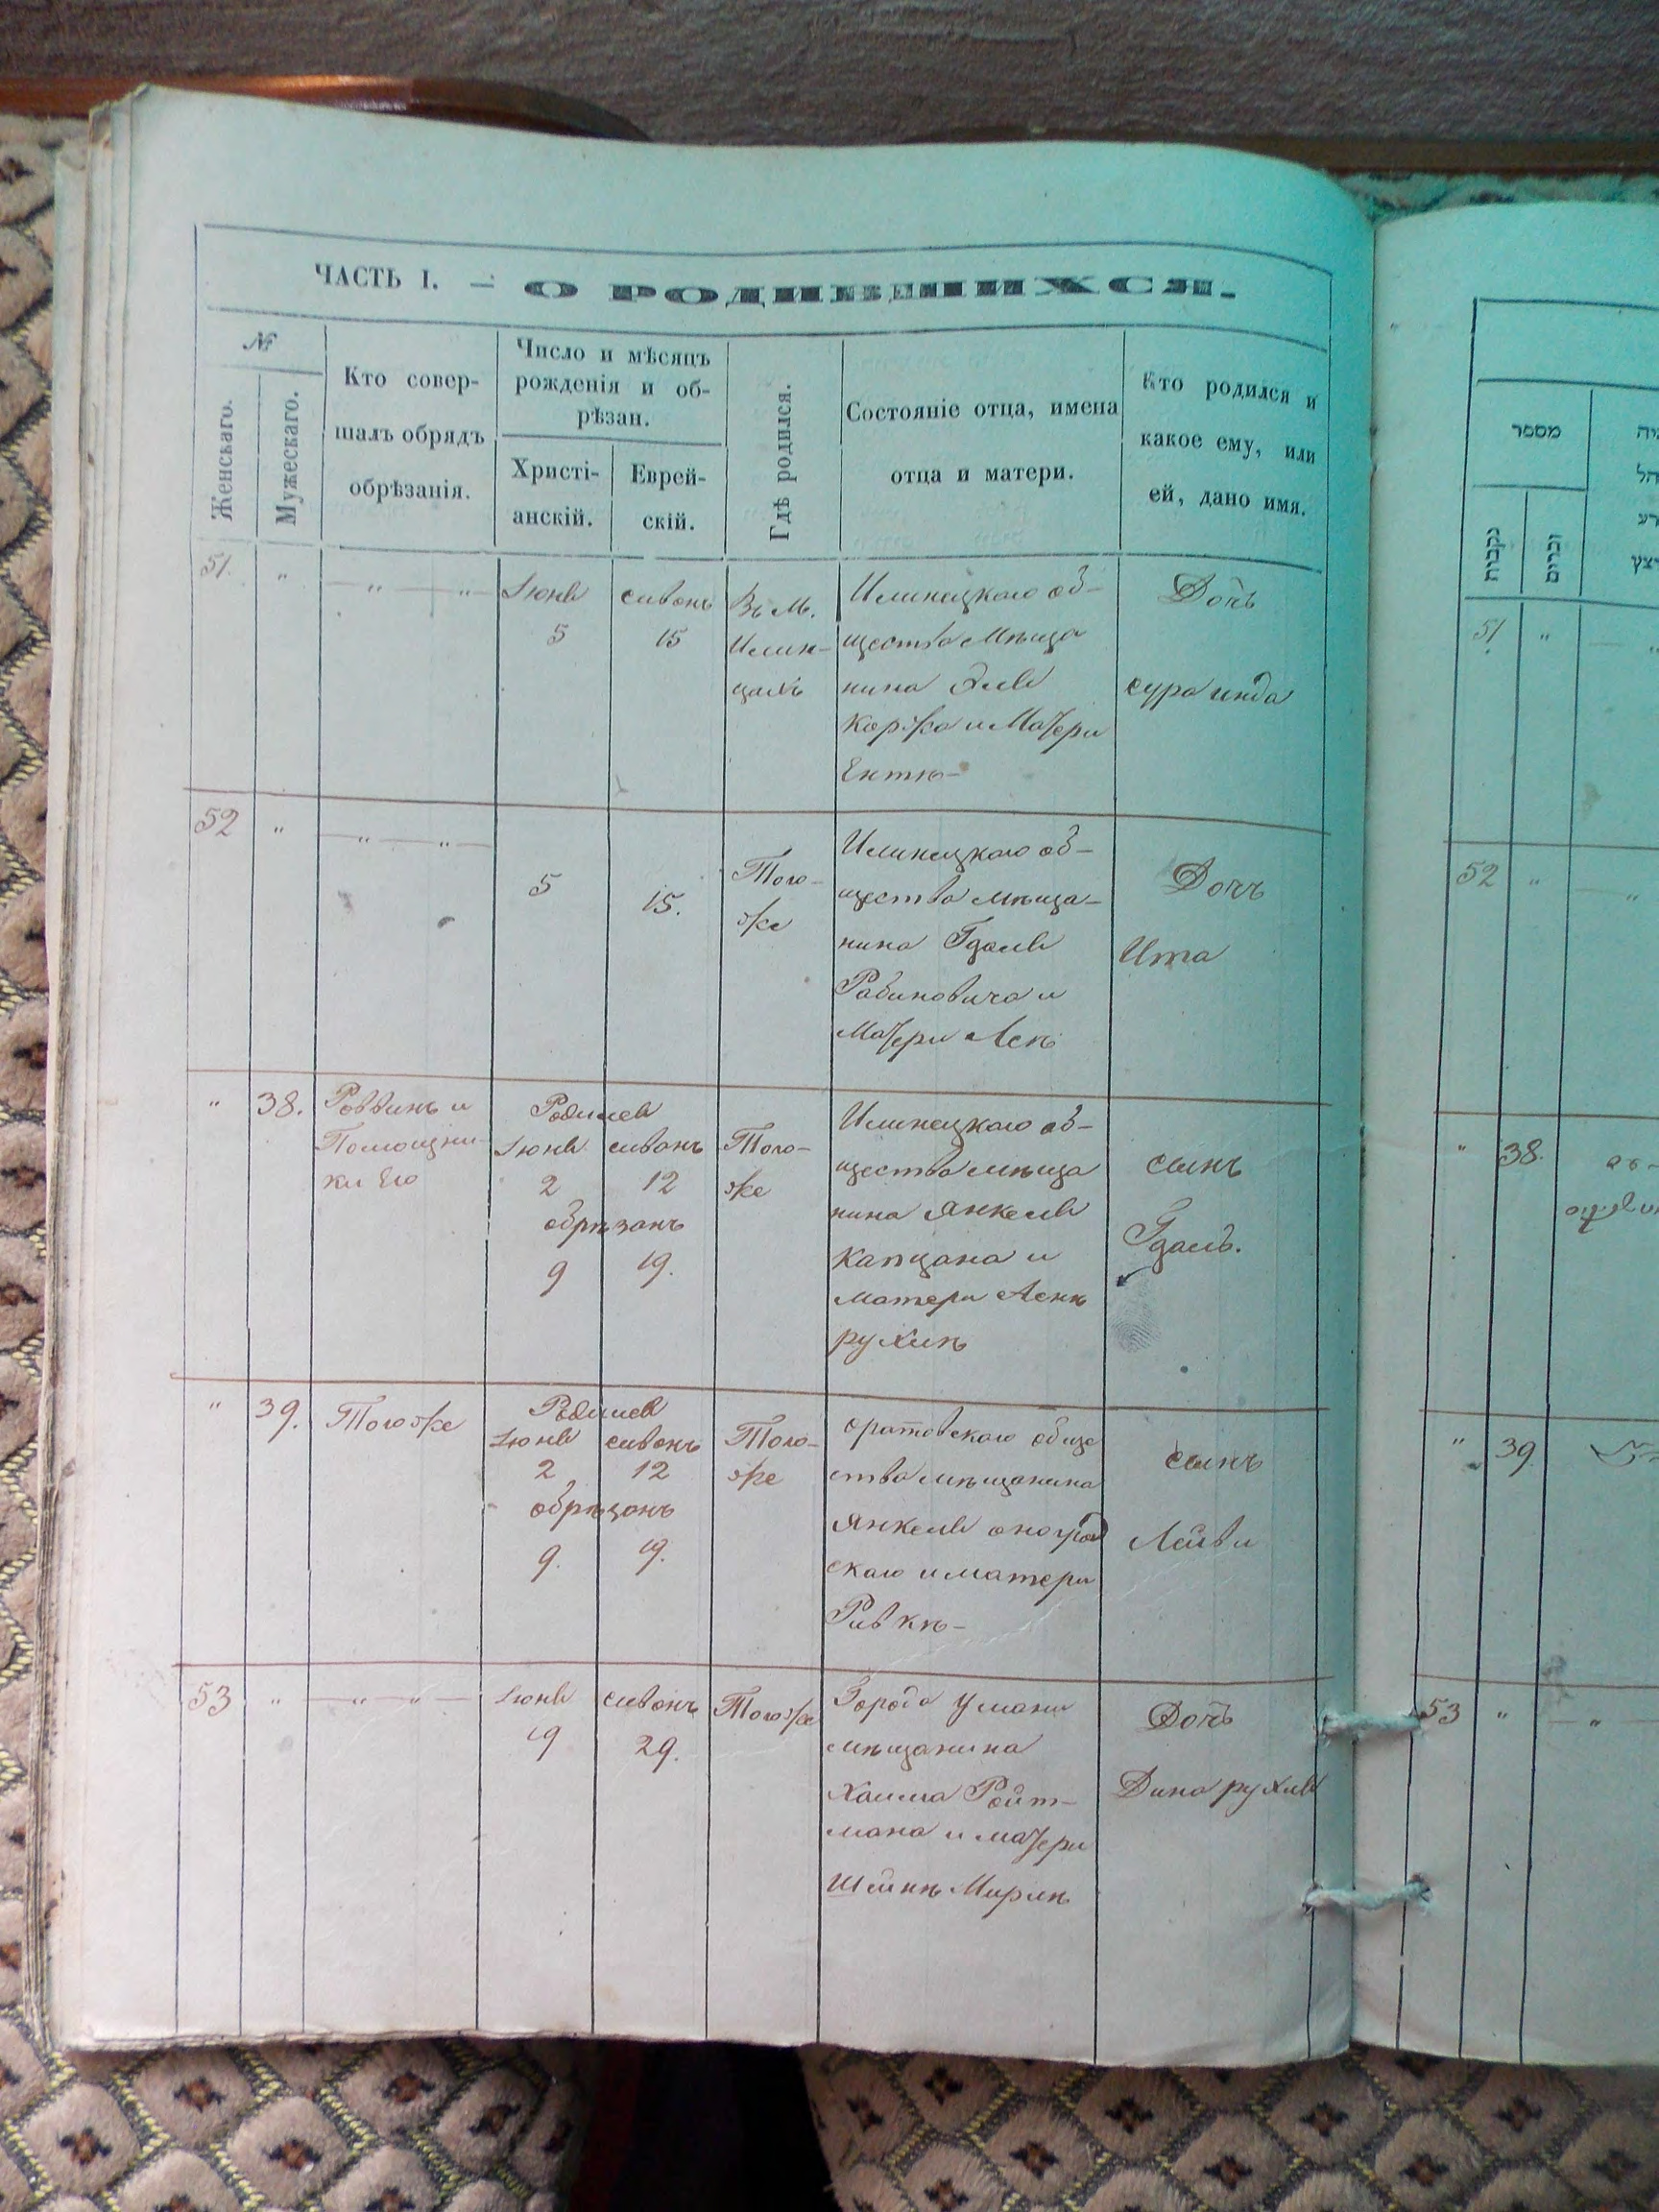 ЧАСТЬ I. — О РОДИВШИХСЯ.
№
Женскаго.
Мужескаго.
Кто совер-
шалъ обрядъ
обрѣзанія.
Число и мѣсяцъ
рожденія и об-
рѣзан.
Христі-
анскій.
Еврей-
скій.
Гдѣ родился.
Состояніе отца, имена
отца и матери.
Кто родился и
какое ему, или
ей, дано имя.
51. " — " — " —
Іюня
5
сивонъ
15
Въ М.
Илин-
цахъ
Илинецкаго об-
щества мѣща
нина Эли
Коржа и Матери
Ентѣ-
Дочь
сура инда
52 " — " — " —
5
15.
Того-
же
Илинецкаго об-
щества мѣща-
нина Гдаля
Рабиновича и
Матери Леѣ
Дочъ
Ита
" 38.
Раввинъ и
Помощни-
ки Его
Родился
Іюня сивонъ
2 12
обрѣзанъ
9 19.
Того-
же
Илинецкаго об-
щества мѣща
нина Янкеля
Капцана и
матери Аснѣ
рухлѣ
сынъ
Гдаль.
" 39.
Того же
Родился
Іюня сивонъ
2 12
обрѣзанъ
9. 19.
Того-
же
оратовскаго обще
ства мѣщанина
Янкеля
скаго и матери
Ривкѣ-
сынъ
Лейви
53 " — " — " —
Іюня
19
сивонъ
29.
Того же
Города Умани
мѣщанина
Хаима Ройт-
мана и матери
Шейнѣ Мирлѣ
Дочь
Дина рухля
מספר
נקבות
זכרים
51 "
52 "
" 38.
" 39
53 "